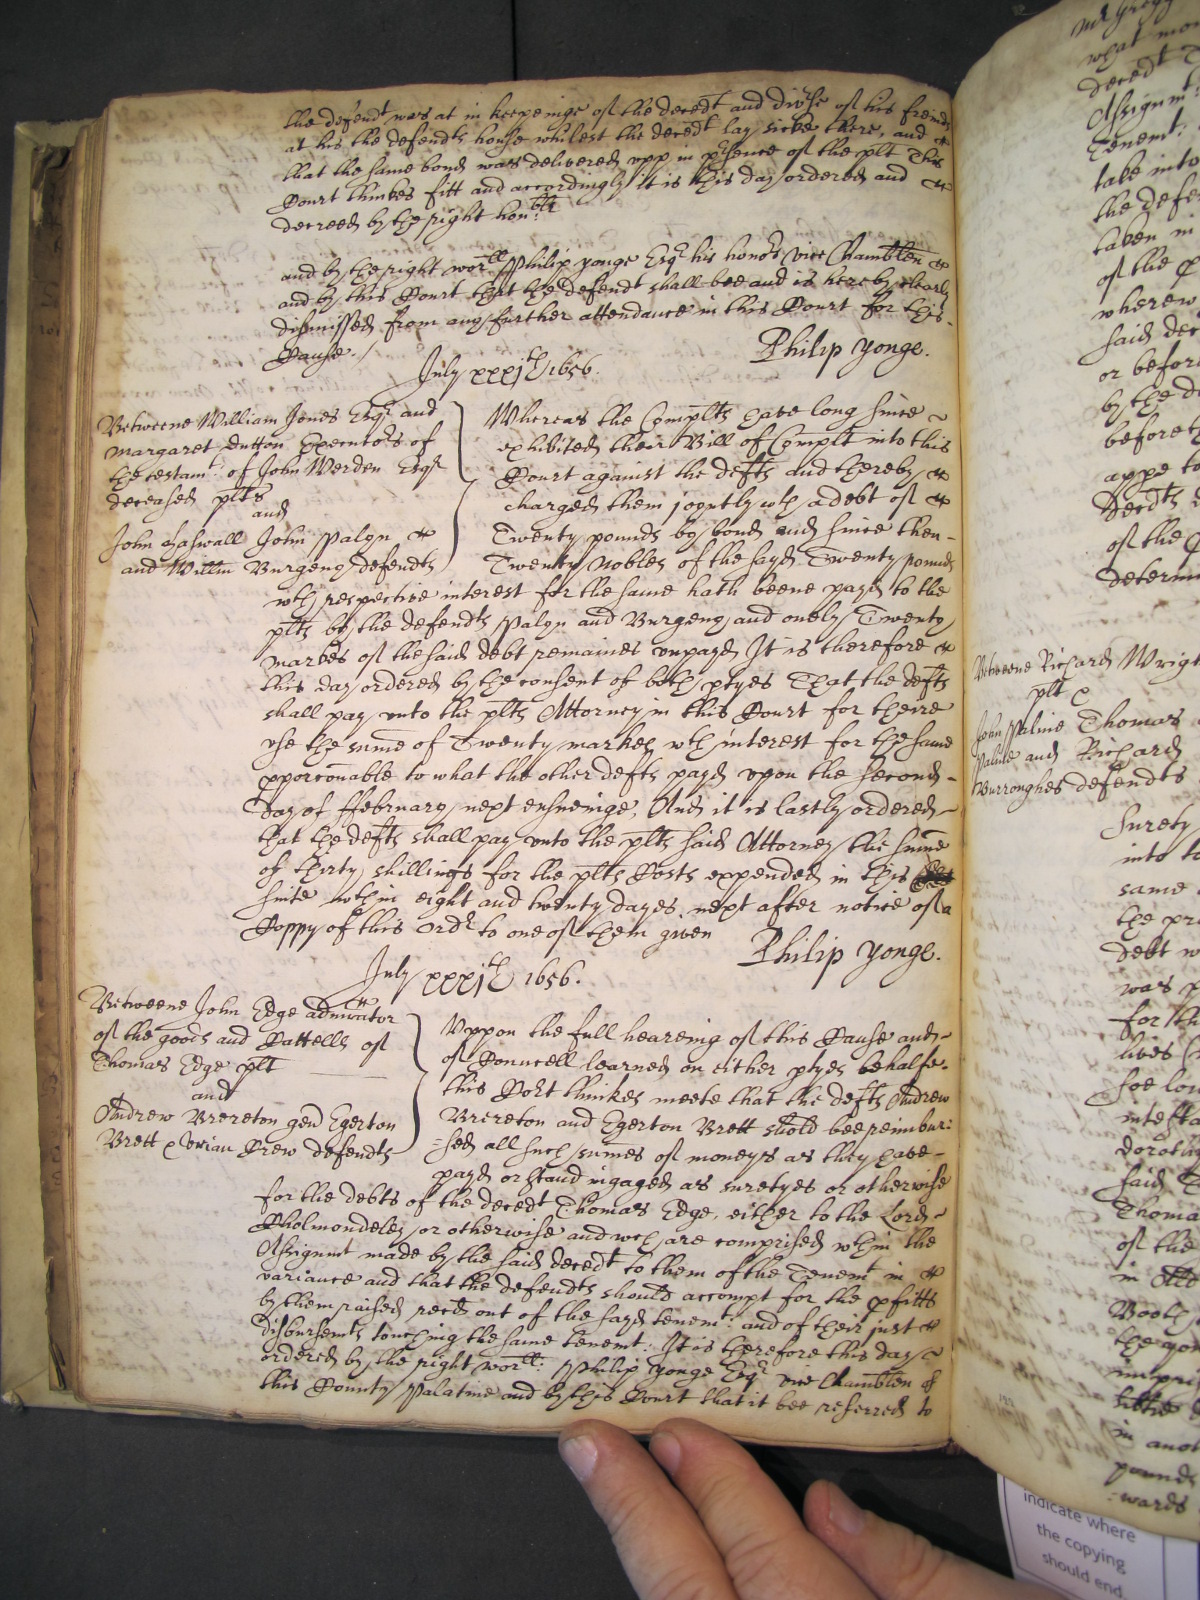 the defendt was at in keepeinge of the decedt and div'se of his freinds
at his the defendts house whilest the decedt lay sicke there, and
that the same bond was delivered upp in p'sence of the plt This
Court thinkes fitt and accordingly it is this day ordered and
decreed by the right hon:ble
and by the right wor:ll Philip yonge Esqr his honors vice Chamblen
and by this Court that the defendt shall bee and is hereby clearly
dismissed from any further attendance in this Court for this
Cause./
Philip yonge.
July xxxjth 1656.
Betweene William Jones Esqr and
Margaret Dutton Executors of
the testamt: of John Werden Esqr
deceased plts
and
John Haswall John Palyn
and Willm Burgeny defendts
Whereas the Complts have long since
exhibited their Bill of Complt into this
Court against the defts and thereby
charged them joyntly wth a debt of
Twenty pounds by bond and since then
Twenty Nobles of the sayd Twenty pounds
wth respective interest for the same hath beene payd to the
plts by the defendts Palyn and Burgeny and onely Twenty
markes of the said debt remaines unpayd It is therefore
this day ordered by the consent of both ptyes That the defts
shall pay unto the plts Attorney in this Court for theire
use the sume of Twenty markes wth interest for the same
pporconable to what the other defts payd upon the second
day of ffebruary next ensueinge, And it is lastly ordered
that the defts shall pay unto the plts said Attorney the sume
of thirty shillings for the plts Costs expended in this
suite wthin eight and twenty dayes next after notice of a
Coppy of this ordr to one of them given
Philip yonge.
July xxxjth 1656.
Betweene John Edge administrator
of the goods and Cattells of
Thomas Edge plt
and
Andrew Brereton gen Egerton
Brett & Urian Crew defendts
Uppon the full heareing of this Cause and
of Councell learned on either ptyes behalfe
this Cort thinkes meete that the defts Andrew
Brereton and Egerton Brett shold bee reimbur:
=sed all such sumes of moneys as they have
payd or stand ingaged as suretyes or otherwise
for the debts of the decedt Thomas Edge, either to the Lord
Cholmondeley or otherwise and wch are comprised wthin the
Assignmt made by the said decedt to them of the Tenemt in
variance and that the defendts should accompt for the pfitts
by them raised out of the sayd tenemt: and of their just
disbursemts touching the same tenemt: It is therefore this day
ordered by the right wor:ll: Philip yonge Esqr vice Chamblen of
this County Palatine and by this Court that it bee referred to
what
decedt
Assignmt
Tenemt:
take into
the defen
taken in
of the
wherew
said dec
or before
by the d
before
appe to
of the
determi
Betweene Richard Wrigh
plt &
John Paline Thomas
Paline and Richard
Burroughes defendts
surety
into
same
the pr
debt w
was p
for th
lives
intesta
said T
Thoma
of the
in
Booth
in anot
pounds
:wards
indicate where
the copying
should end.